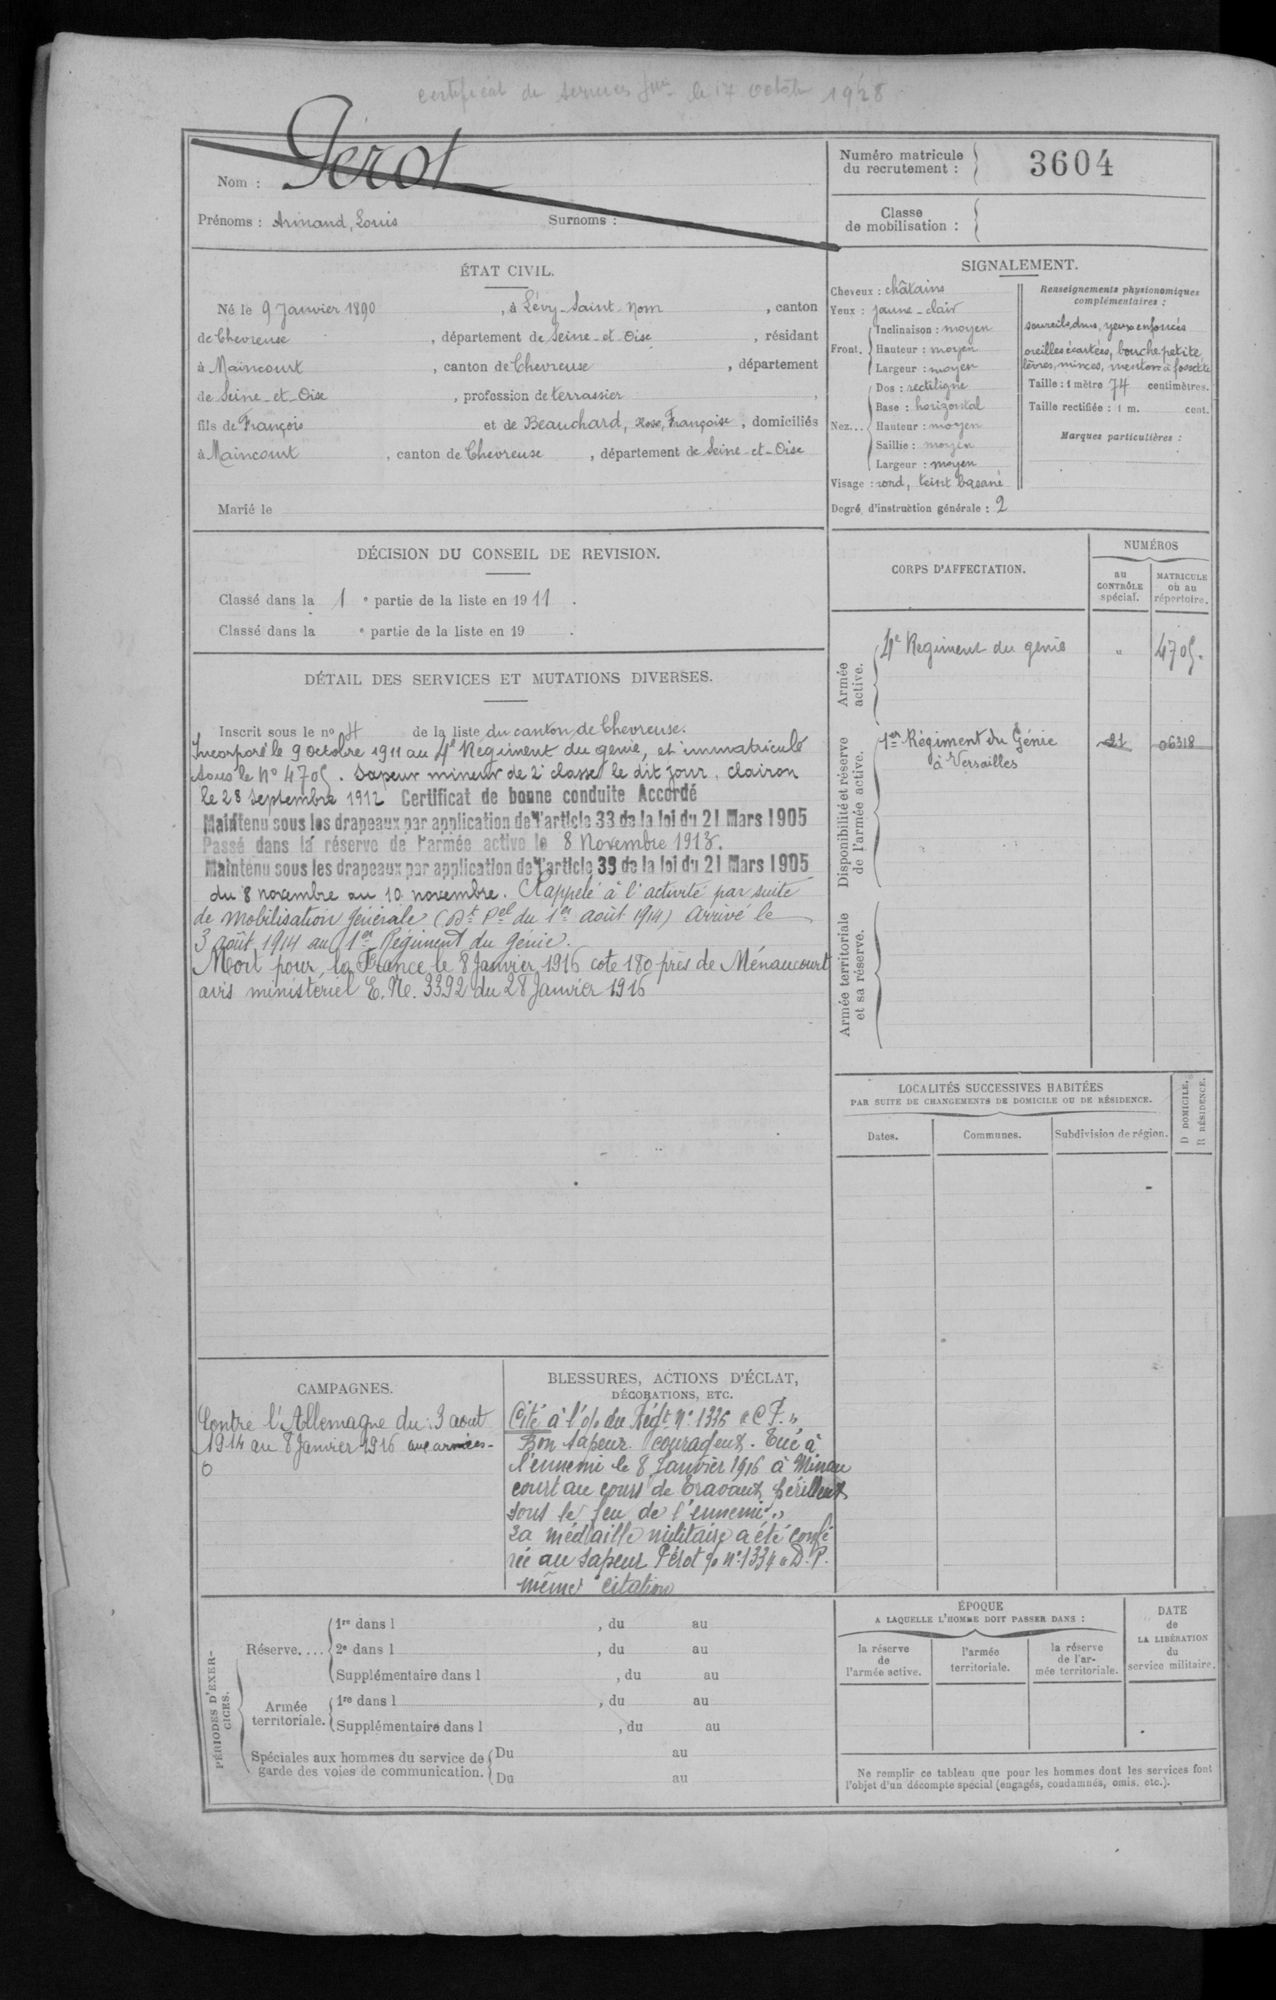 certificat de services le 17 octobre 1928
Nom : Pérot
Prénoms : Armand, Louis Surnoms :
Numéro matricule
du recrutement : 3604
Classe
de mobilisation :
ÉTAT CIVIL.
Né le 9 Janvier 1890, à Lévy-Saint-Nom, canton
de Chevreuse, département de Seine-et-Oise, résidant
à Maincourt, canton de Chevreuse, département
de Seine-et-Oise, profession de terrassier,
fils de François et de Beauchard, Rose, Françoise, domiciliés
à Maincourt, canton de Chevreuse, département de Seine-et-Oise
Marié le
SIGNALEMENT.
Cheveux : châtains
Yeux : jaune-clair
Front. Inclinaison : moyen
Hauteur : moyen
Largeur : moyen
Nez... Dos : rectiligne
Base : horizontal
Hauteur : moyen
Saillie : moyen
Largeur : moyen
Visage : rond, teint basané
Degré d'instruction générale : 2
Renseignements physionomiques
complémentaires :
sourcils drus, yeux enfoncés
oreilles écartées, bouche petite,
lèvres minces, menton à fossette
Taille : 1 mètre 74 centimètres.
Taille rectifiée : 1 m. cent.
Marques particulières :
DÉCISION DU CONSEIL DE REVISION.
Classé dans la 1e partie de la liste en 1911.
Classé dans la e partie de la liste en 19 .
CORPS D'AFFECTATION.
NUMÉROS
au
CONTRÔLE
spécial.
MATRICULE
ou au
répertoire.
Armée
active.
4e Regiment du génie " 4705.
Disponibilité et réserve
de l'armée active.
1er Régiment du Génie 21 06318
à Versailles
Armée territoriale
et sa réserve.
DÉTAIL DES SERVICES ET MUTATIONS DIVERSES.
Inscrit sous le no 4 de la liste du canton de Chevreuse.
Incorporé le 9 octobre 1911 au 4e Régiment du génie, et immatriculé
sous le No 4705. Sapeur mineur de 2e classe le dit jour, clairon
le 28 septembre 1912 Certificat de bonne conduite Accordé
Maintenu sous les drapeaux par application de l'article 33 de la loi du 21 Mars 1905
Passé dans la réserve de l'armée active le 8 Novembre 1913.
Maintenu sous les drapeaux par application de l'article 39 de la loi du 21 Mars 1905
du 8 novembre au 10 novembre. Rappelé à l'activité par suite
de mobilisation générale (Dt Pel du 1er août 1914) Arrivé le
3 août 1914 au 1er Régiment du Génie.
Mort pour la France le 8 Janvier 1916 cote 180 près de Ménaucourt
avis ministériel E. Ne. 3392 du 28 Janvier 1916
LOCALITÉS SUCCESSIVES HABITÉES
PAR SUITE DE CHANGEMENTS DE DOMICILE OU DE RÉSIDENCE.
Dates. Communes. Subdivision de région.
D DOMICILE.
R RÉSIDENCE.
CAMPAGNES.
Contre l'Allemagne du 3 août
1914 au 8 Janvier 1916 aux armées-
BLESSURES, ACTIONS D'ÉCLAT,
DÉCORATIONS, ETC.
Cité à l'o/ du Régt No 1335 "C F."
Bon sapeur courageux. Tué à
l'ennemi le 8 Janvier 1916 à Minau
court au cours de travaux périlleux
sous le feu de l'ennemi"
La médaille militaire a été confé
rée au sapeur Pérot no 1334 "D. P.
même citation
PÉRIODES D'EXER-
CICES.
Réserve.... 1re dans l , du au
2e dans l , du au
Supplémentaire dans l , du au
Armée
territoriale. 1re dans l , du au
Supplémentaire dans l , du au
Spéciales aux hommes du service de
garde des voies de communication. Du au
Du au
ÉPOQUE
A LAQUELLE L'HOMME DOIT PASSER DANS :
la réserve
de
l'armée active.
l'armée
territoriale.
la réserve
de l'ar-
mée territoriale.
DATE
de
LA LIBÉRATION
du
service militaire.
Ne remplir ce tableau que pour les hommes dont les services font
l'objet d'un décompte spécial (engagés, condamnés, omis, etc.).